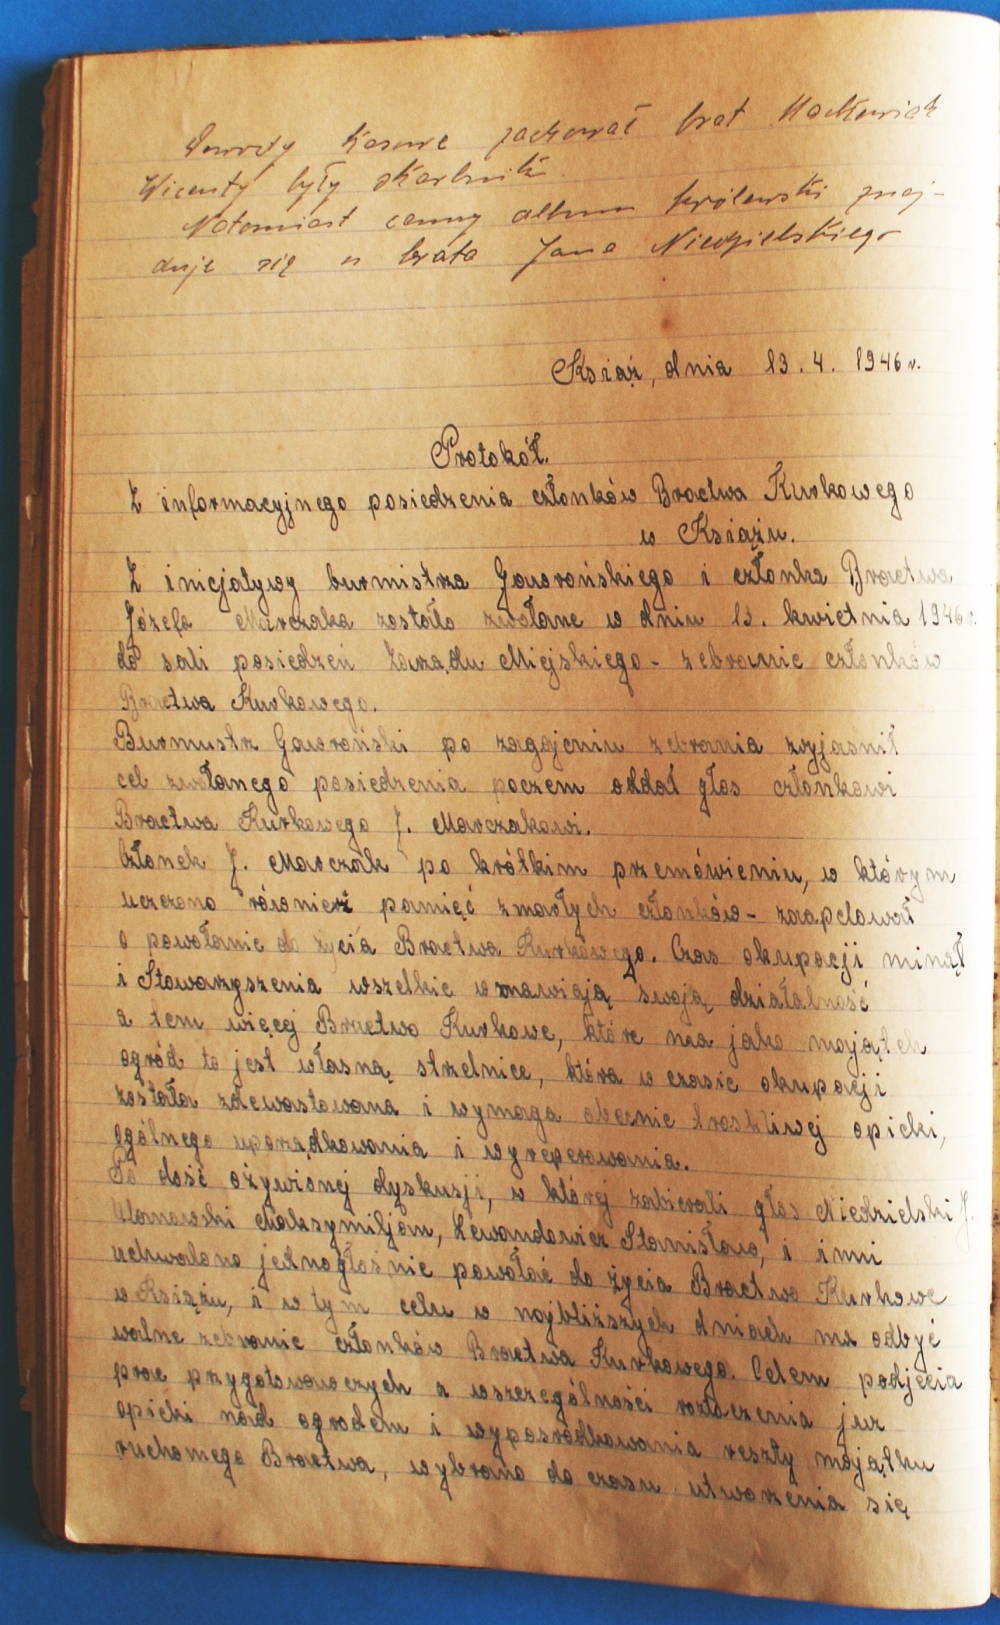 Dowody Kasowe zachował brat Maćkowiak
Wicenty były skarbnik.
Natomiast cenny album królewski znaj-
duje się u brata Jana Niedzielskiego
Książ, dnia 13. 4. 1946 r.
Protokół.
Z informacyjnego posiedzenia członków Bractwa Kurkowego
w Książu.
Z inicjatywy burmistrza Gaworońskiego i członka Bractwa
Józefa Marczaka zostało zwołane w dniu 13. kwietnia 1946 r.
do sali posiedzeń Zarządu Miejskiego - zebranie członków
Bractwa Kurkowego.
Burmistrz Gaworoński po zagajeniu zebrania wyjaśnił
cel zwołanego posiedzenia poczem oddał głos członkowi
Bractwa Kurkowego J. Marczakowi.
Członek J. Marczak po krótkim przemówieniu, w którym
uczczono również pamięć zmarłych członków - zaapelował
o powołanie do życia Bractwa Kurkowego. Czas okupacji minął
i Stowarzyszenia wszelkie wznawiają swoją działalność
a tem więcej Bractwo Kurkowe, które ma jako majątek
ogród to jest własną strzelnice, która w czasie okupacji
została zdewastowana i wymaga obecnie troskliwej opieki,
ogólnego uporządkowania i wyreperowania.
Po dość ożywionej dyskusji, w której zabierali głos Niedzielski J.
Maksymiljan, Lewandowicz Stanisław, i inni
uchwalono jednogłośnie powołać do życia Bractwo Kurkowe
w Książu, i w tym celu w najbliższych dniach ma odbyć
walne zebranie członków Bractwa Kurkowego. Celem podjęcia
prac przygotowawczych a wszczególności roztoczenia już
opieki nad ogrodem i wypośrodkowania reszty majątku
ruchomego Bractwa, wybrano do czasu utworzenia się